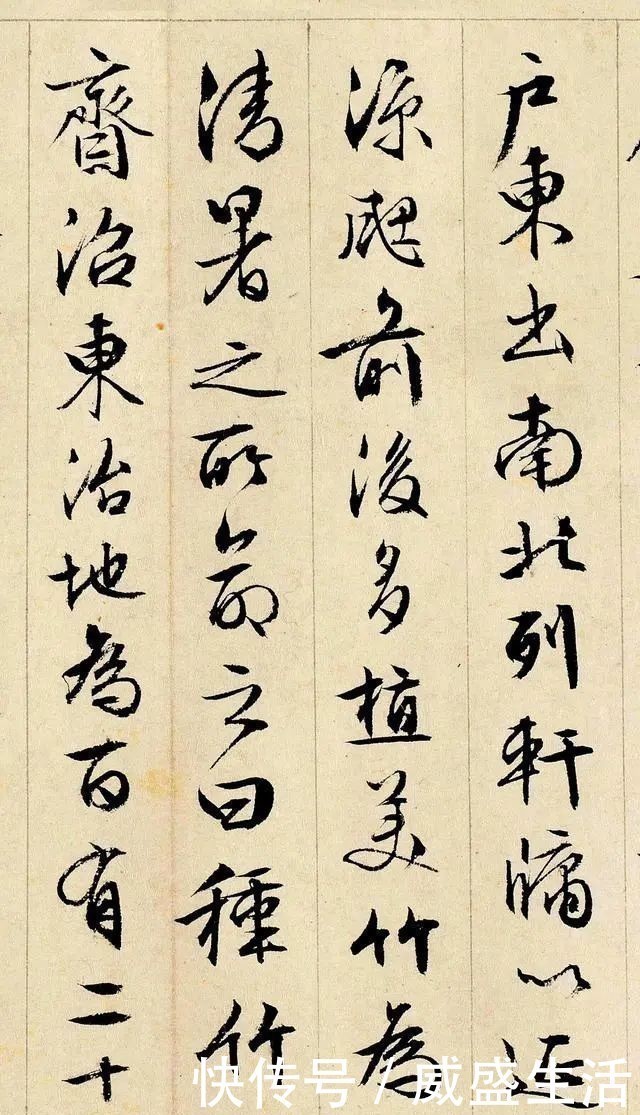 户東出南北列軒牖以延
凉颸前後多植美竹為
清暑之所命之曰種竹
齋沼東治地為百有二十
快传号 / 威盛生活